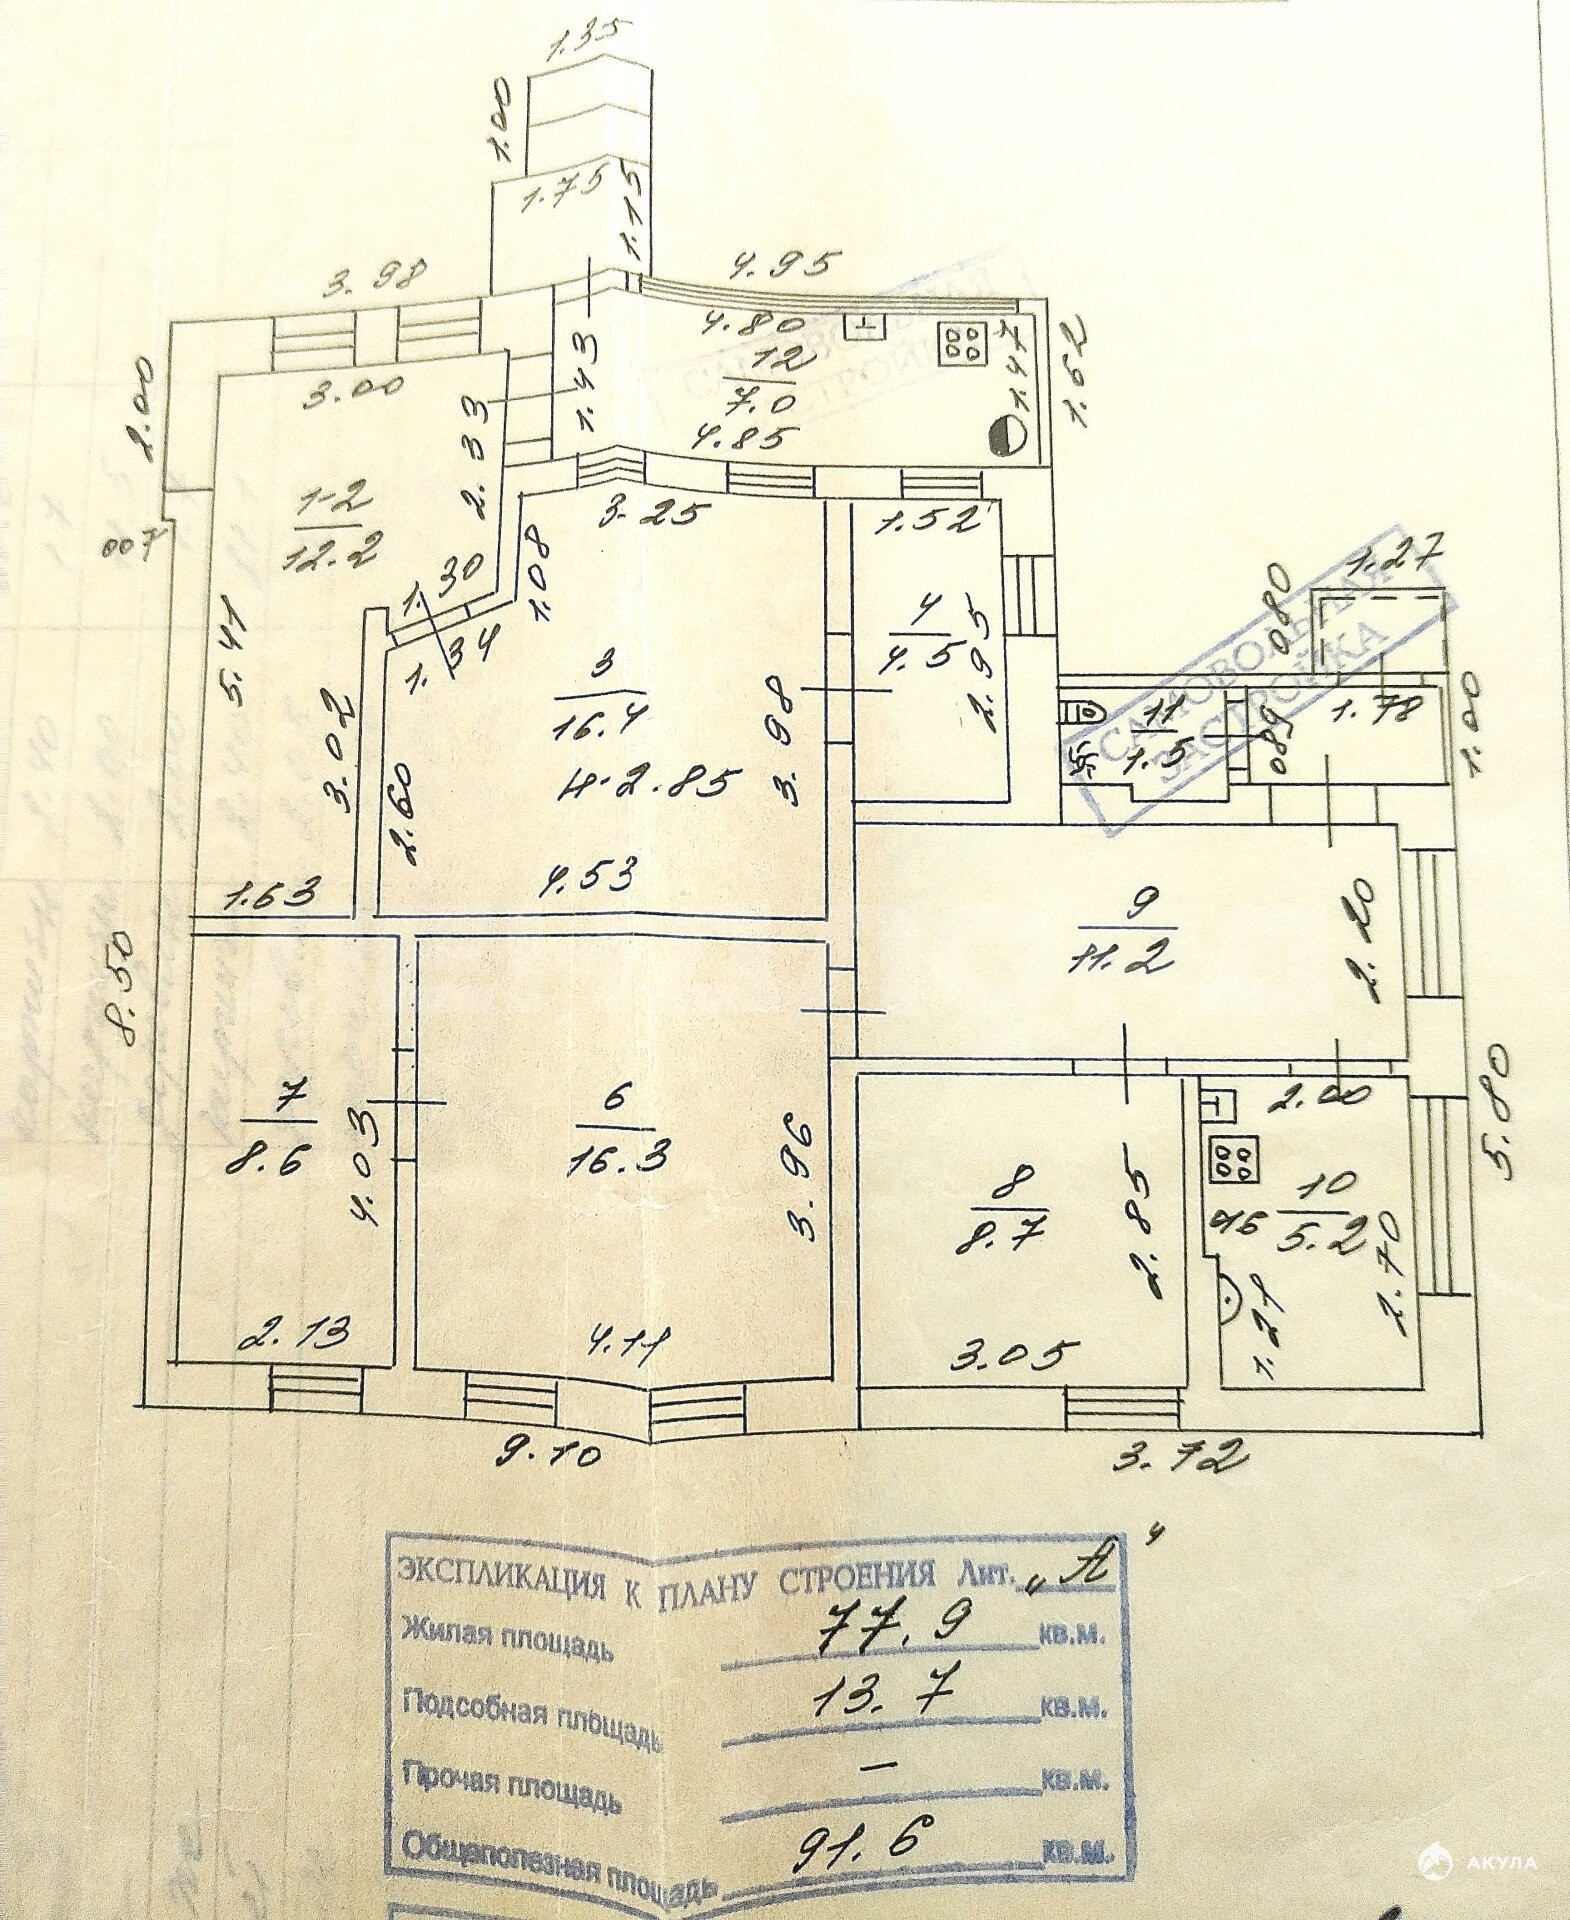 1.35
1.00
1.75
1.15
3.98
4.95
4.80
12
7.0
4.85
1.43
1.47
1.62
2.00
3.00
2.33
1-2
12.2
007
1.30
1.34
1.08
3.25
1.52
4
4.5
2.95
5.41
3.02
2.60
3
16.4
H-2.85
3.98
4.53
1.63
САМОВОЛЬНАЯ
ЗАСТРОЙКА
1.27
080
11
1.5
089
1.78
1.00
9
11.2
2.20
8.50
7
8.6
4.03
2.13
6
16.3
3.96
4.11
8
8.7
2.85
3.05
2.00
10
5.2
2.70
1.21
5.80
9.10
3.72
ЭКСПЛИКАЦИЯ К ПЛАНУ СТРОЕНИЯ Лит. „А"
Жилая площадь 77.9 кв.м.
Подсобная площадь 13.7 кв.м.
Прочая площадь — кв.м.
Общеполезная площадь 91.6 кв.м.
АКУЛА